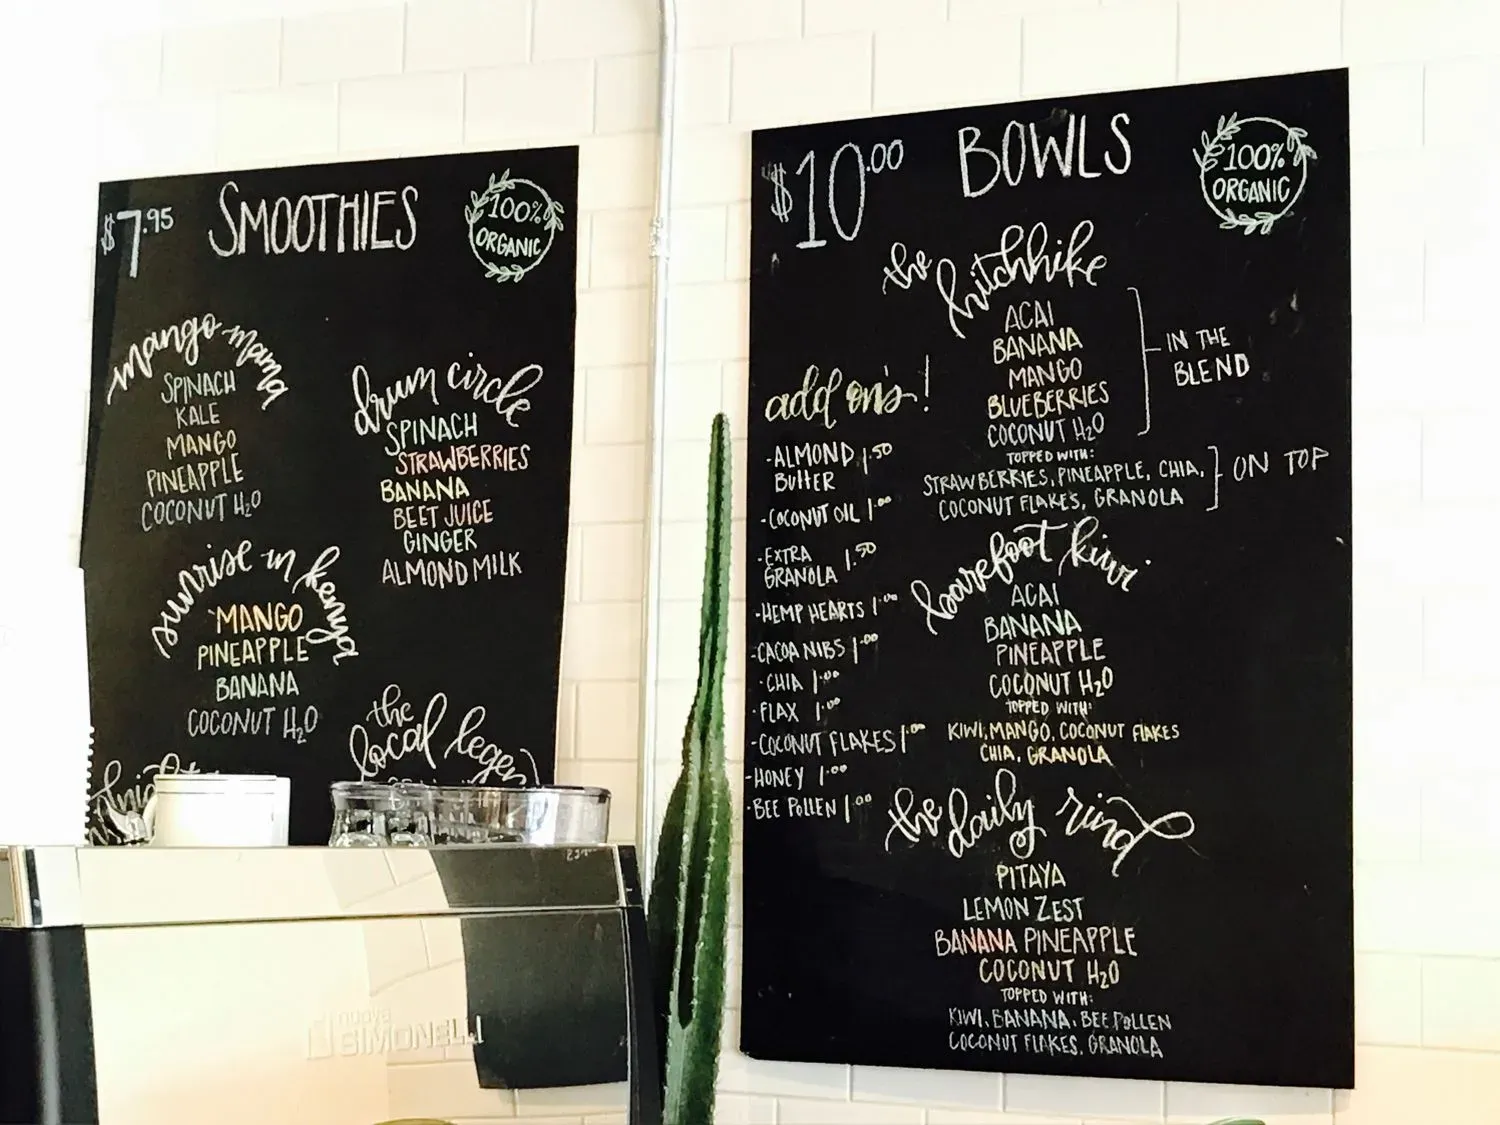 $7.95 SMOOTHIES 100% ORGANIC
mango mama
SPINACH
KALE
MANGO
PINEAPPLE
COCONUT H2O
drum circle
SPINACH
STRAWBERRIES
BANANA
BEET JUICE
GINGER
ALMOND MILK
sunrise in kenya
MANGO
PINEAPPLE
BANANA
COCONUT H2O
the
local legend
$10.00 BOWLS 100% ORGANIC
add on's!
-ALMOND BUTTER 1.50
-COCONUT OIL 1.00
-EXTRA GRANOLA 1.50
-HEMP HEARTS 1.00
-CACOA NIBS 1.00
-CHIA 1.00
-FLAX 1.00
-COCONUT FLAKES 1.00
-HONEY 1.00
-BEE POLLEN 1.00
the hitchhike
ACAI
BANANA
MANGO
BLUEBERRIES
COCONUT H2O
IN THE BLEND
TOPPED WITH:
STRAWBERRIES, PINEAPPLE, CHIA,
COCONUT FLAKES, GRANOLA
ON TOP
barefoot kiwi
ACAI
BANANA
PINEAPPLE
COCONUT H2O
TOPPED WITH:
KIWI, MANGO, COCONUT FLAKES
CHIA, GRANOLA
the daily rind
PITAYA
LEMON ZEST
BANANA PINEAPPLE
COCONUT H2O
TOPPED WITH:
KIWI, BANANA, BEE POLLEN
COCONUT FLAKES, GRANOLA
nuova
SIMONELLI